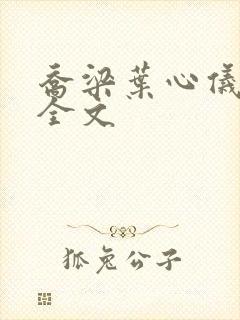 乔梁葉心儀
全文
狐兔公子